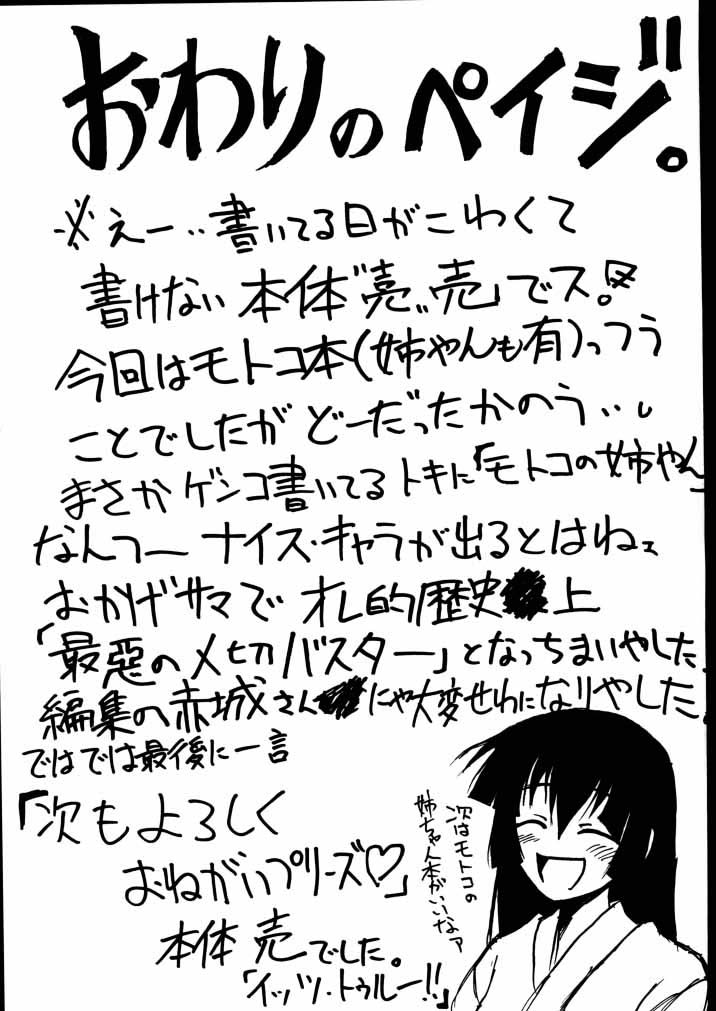 おわりのペイジ。
※えー‥書いてる日がこわくて
書けない本体"売„売」でス。
今回はモトコ本(姉やんも有)っつう
ことでしたがどーだったかのう‥
まさかゲンコ書いてるトキに「モトコの姉やん」
なんつーナイス・キャラが出るとはねェ
おかげサマでオレ的歴史上
「最悪の〆切バスター」となっちまいやした。
編集の赤城さんにや大変せわになりやした。
ではでは最後に一言
「次もよろしく
おねがいプリーズ♡」
本体 売でした。
「イッツ・トゥルー!!」
次はモトコの
姉ちゃん本がいいなァ